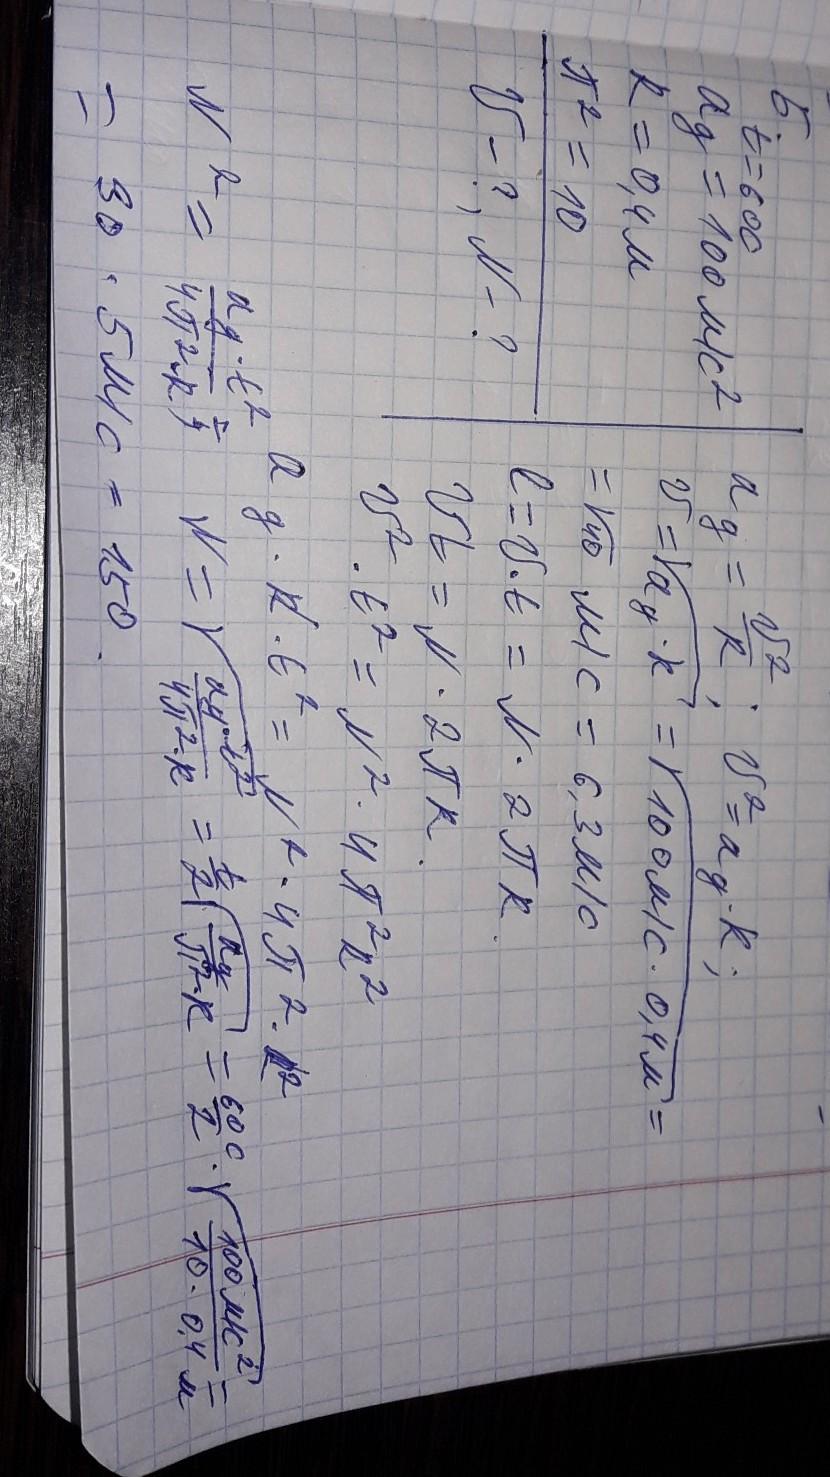 5
t=60с
aд = 100 м/с²
R = 0,4м
π² = 10
V - ?, N - ?
aд = V²/R; V² = aд·R;
V = √aд·R = √100м/с·0,4м =
= √40 м/с = 6,3м/с
l = V·t = N·2πR.
Vt = N·2πR.
V²·t² = N²·4π²R²
aд·R·t² = N²·4π²·R²
N² = aд·t²/4π²·R; N = √aд·t²/4π²·R = t/2 √aд/π²·R = 60с/2 · √100м/с²/10·0,4м =
= 30·5м/с = 150.